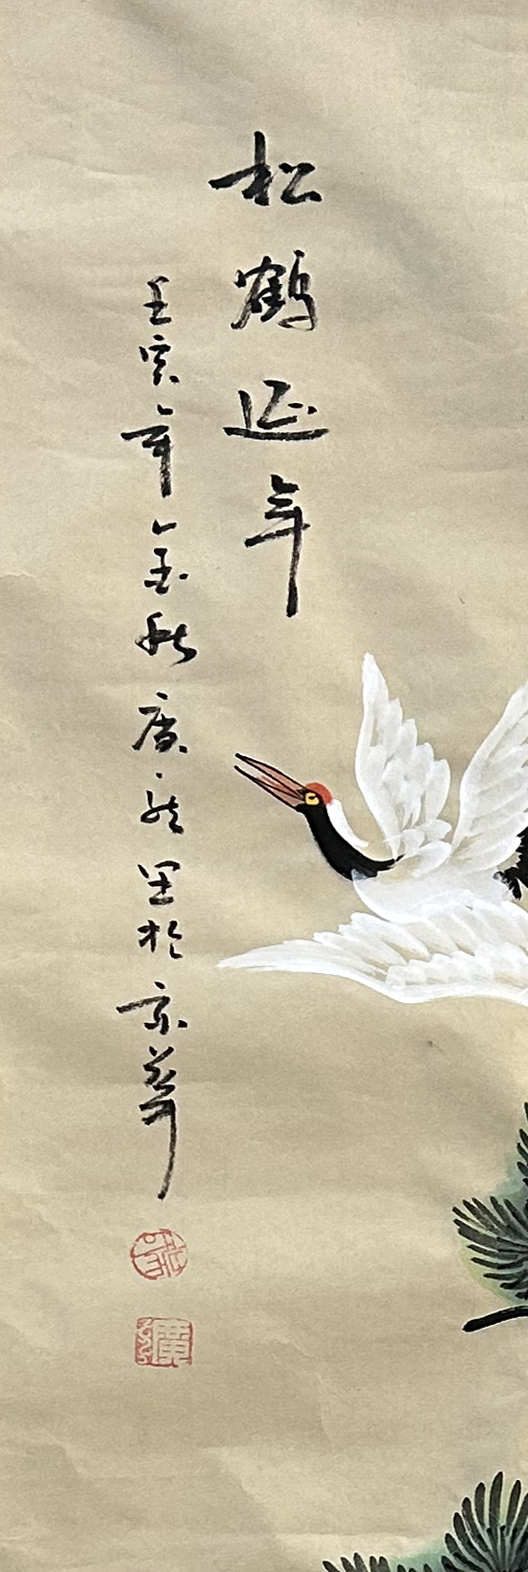 松鶴延年
壬寅年金秋廣 画於京華
廣